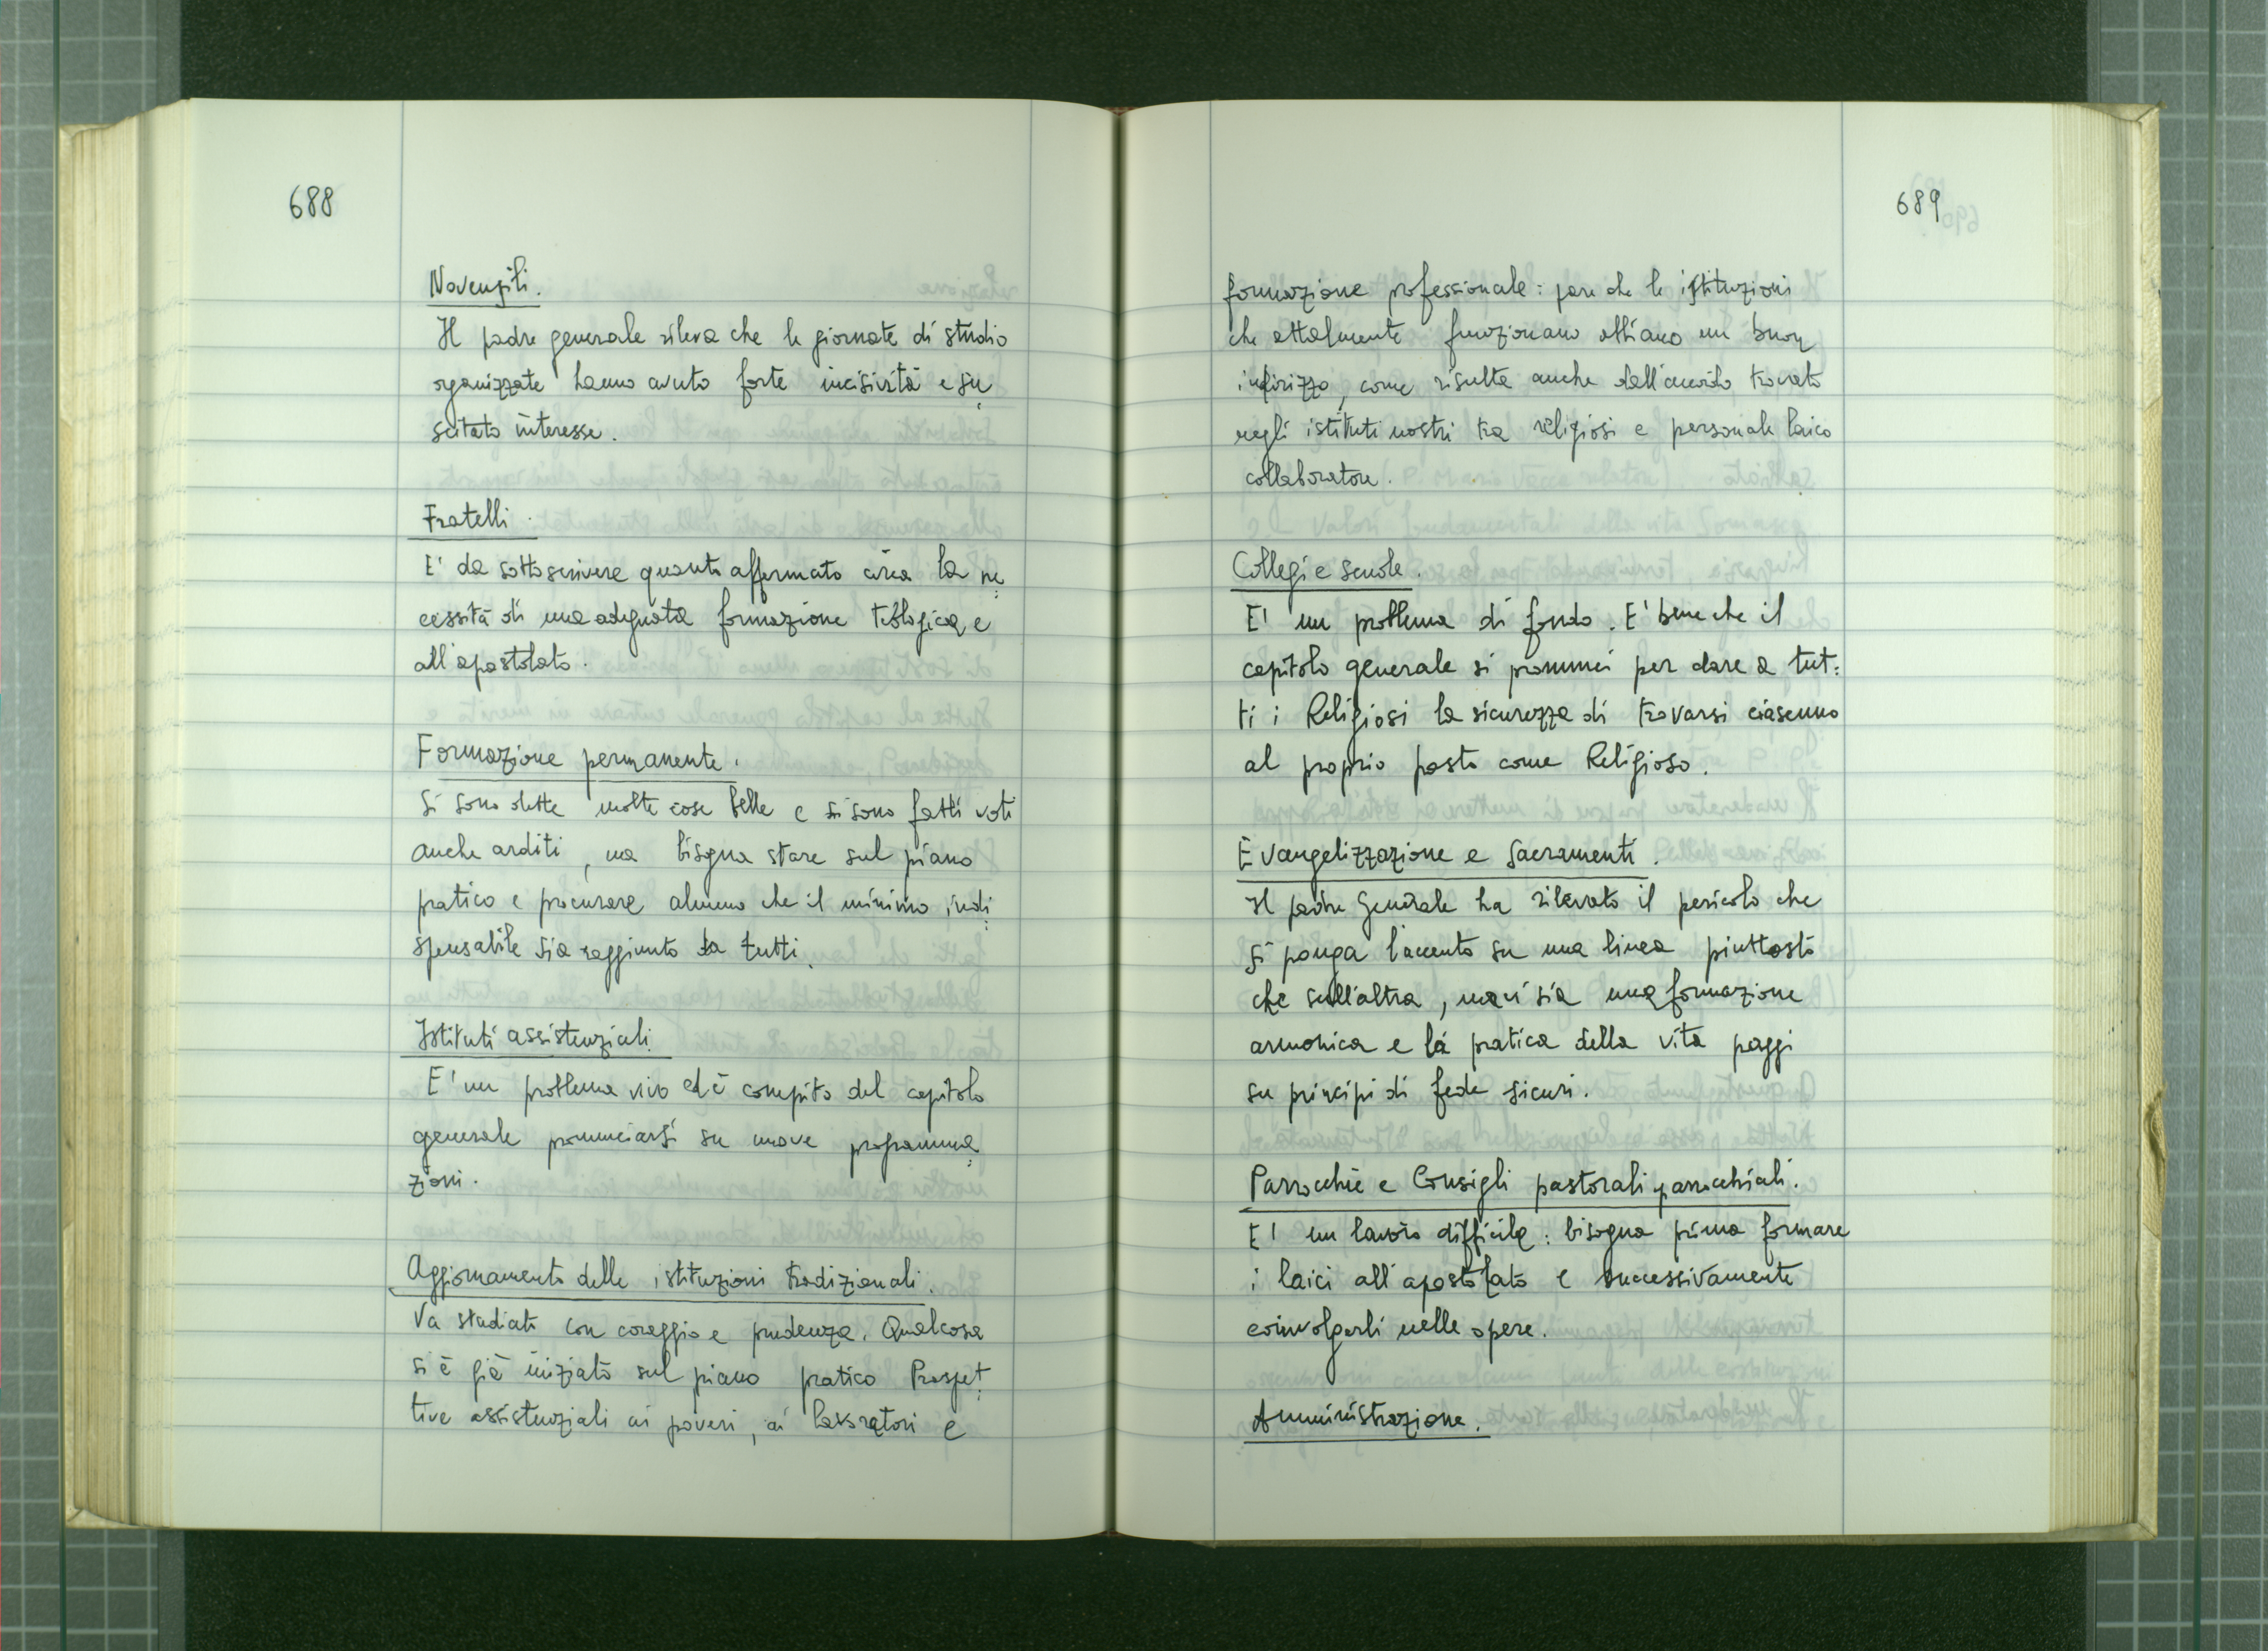 688
Novensili.
Il padre generale rileva che le giornate di studio
organizzate hanno avuto forte incisività e su
scitato interesse.
Fratelli.
E' da sottoscrivere quanto affermato circa la ne
cessità di una adeguata formazione teologica e
all'apostolato.
Formazione permanente.
Si sono dette molte cose belle e si sono fatti voti
anche arditi, ma bisogna stare sul piano
pratico e procurare almeno che il minimo indi
spensabile sia raggiunto da tutti.
Istituti assistenziali.
E' un problema vivo ed è compito del capitolo
generale pronunciarsi su nuove programma
zioni.
Aggiornamento delle istituzioni tradizionali.
Va studiato con coraggio e prudenza. Qualcosa
si è già iniziato sul piano pratico Prospet
tive assistenziali ai poveri, ai lavoratori e
689
formazione professionale: pare che le istituzioni
che attalmente funzionano abbiano un buon
indirizzo, come risulta anche dall'accordo trovato
negli istituti nostri tra religiosi e personale laico
collaboratore.
Collegi e scuole.
E' un problema di fondo. E' bene che il
capitolo generale si pronunci per dare a tut:
ti i Religiosi la sicurezza di trovarsi ciascuno
al proprio posto come Religioso.
Evangelizzazione e Sacramenti.
Il padre Generale ha rilevato il pericolo che
si ponga l'accento su una linea piuttosto
che sull'altra, ma vi sia una formazione
armonica e la pratica della vita poggi
su principi di fede sicuri.
Parrocchie e Consigli pastorali parrocchiali.
E' un lavoro difficile: bisogna prima formare
i laici all'apostolato e successivamente
coinvolgerli nelle opere.
Amministrazione.